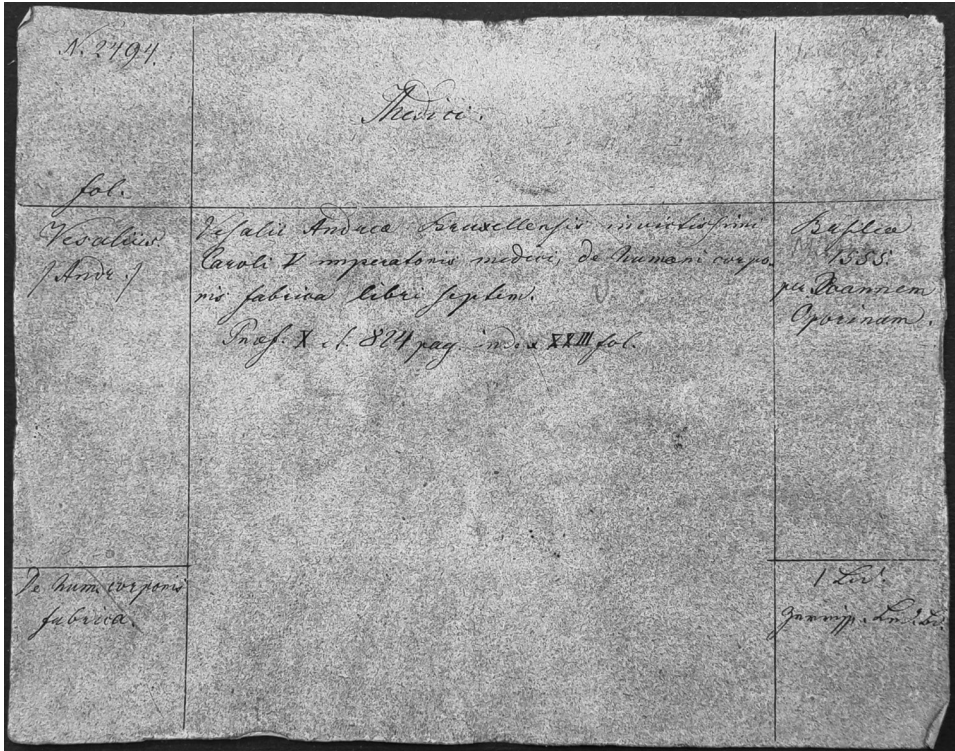 N. 2494.
Medici.
fol.
Vesalius
/Andr./
Vesalii Andreæ Bruxellensis invictissimi
Caroli V imperatoris medici, de humani corpo-
ris fabrica libri septem.
Præf. X et 824 pag. index XXIII fol.
Basileæ
1555.
per Joannem
Oporinum.
De hum. corporis
fabrica.
1